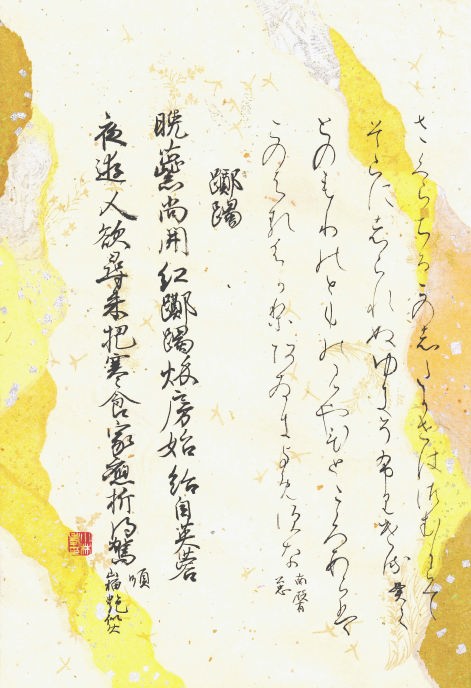 さくらちるこのしたかせはさむからて
そらにしられぬゆきそふりける 貫之
とのもりのとものみやつこころあらは
このはるはかりあさきよめすな
躑躅
晩蘂尚開紅躑躅秋房始結白芙蓉
夜遊人欲尋来把寒食家應折得驚 順
山榴艶似火